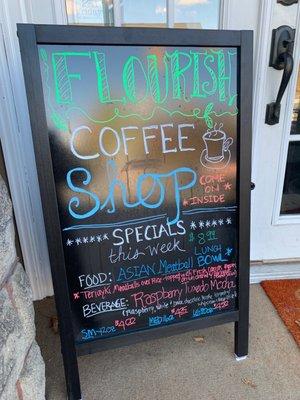 FLOURISH
COFFEE
Shop
COME
ON
INSIDE
SPECIALS
this week
$8.99
LUNCH
BOWL
FOOD: ASIAN Meatball
* Teriyaki Meatballs over Rice - topped w/ Fresh
BEVERAGE: Raspberry Tuxedo Mocha
(raspberry, white & dark chocolate
SM-12oz MED-16oz